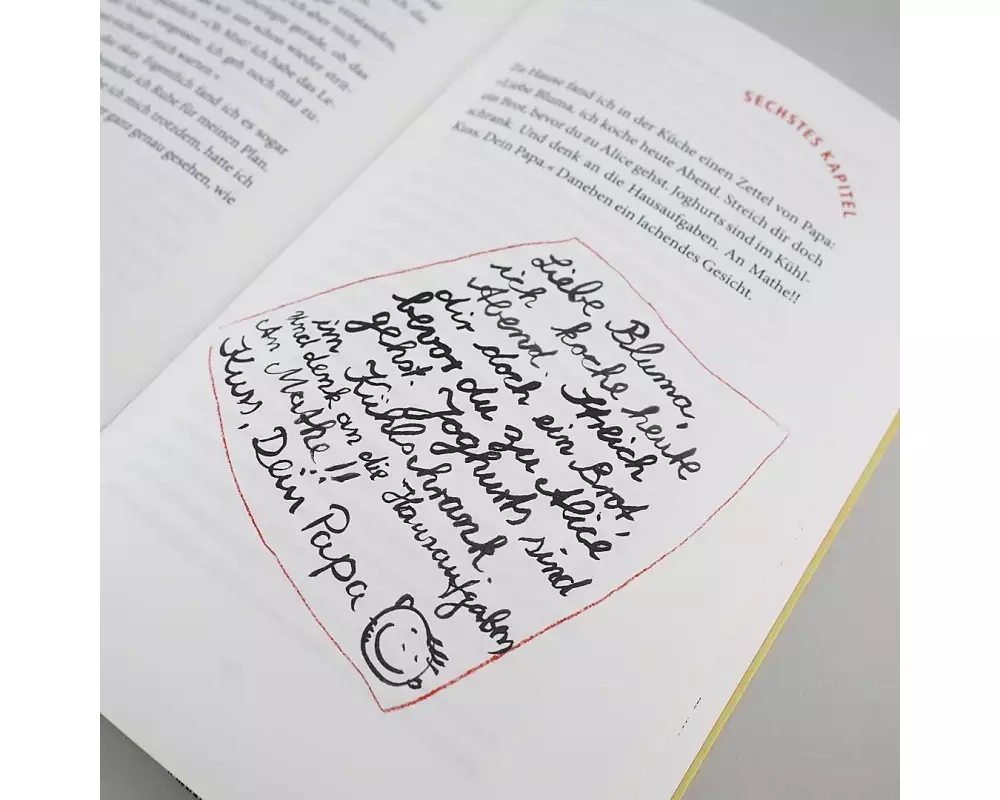 die
verstanden,
ich aber nicht.
gerade, ob das
uns schon wieder strit-
»Oh Mist! Ich habe das Le-
vergessen. Ich geh noch mal zu-
auf mich warten.«
okay. Eigentlich fand ich es sogar
ich Ruhe für meinen Plan.
ich mich trotzdem, hatte ich
ganz genau gesehen, wie
SECHSTES KAPITEL
Zu Hause fand ich in der Küche einen Zettel von Papa:
»Liebe Bluma, ich koche heute Abend. Streich dir doch
ein Brot, bevor du zu Alice gehst. Joghurts sind im Kühl-
schrank. Und denk an die Hausaufgaben. An Mathe!!
Kuss, Dein Papa.« Daneben ein lachendes Gesicht.
Liebe Bluma,
ich koche heute
Abend. Streich
dir doch ein Brot,
bevor du zu Alice
gehst. Joghurts sind
im Kühlschrank.
Und denk an die Hausaufgaben
An Mathe!!
Kuss, Dein Papa